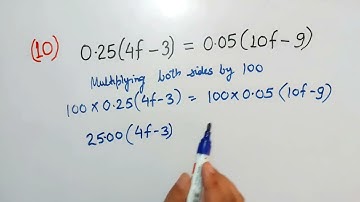 (10) 0.25(4f-3) = 0.05(10f-9)
Multiplying both sides by 100
100 x 0.25(4f-3) = 100 x 0.05 (10f-9)
25.00 (4f-3)